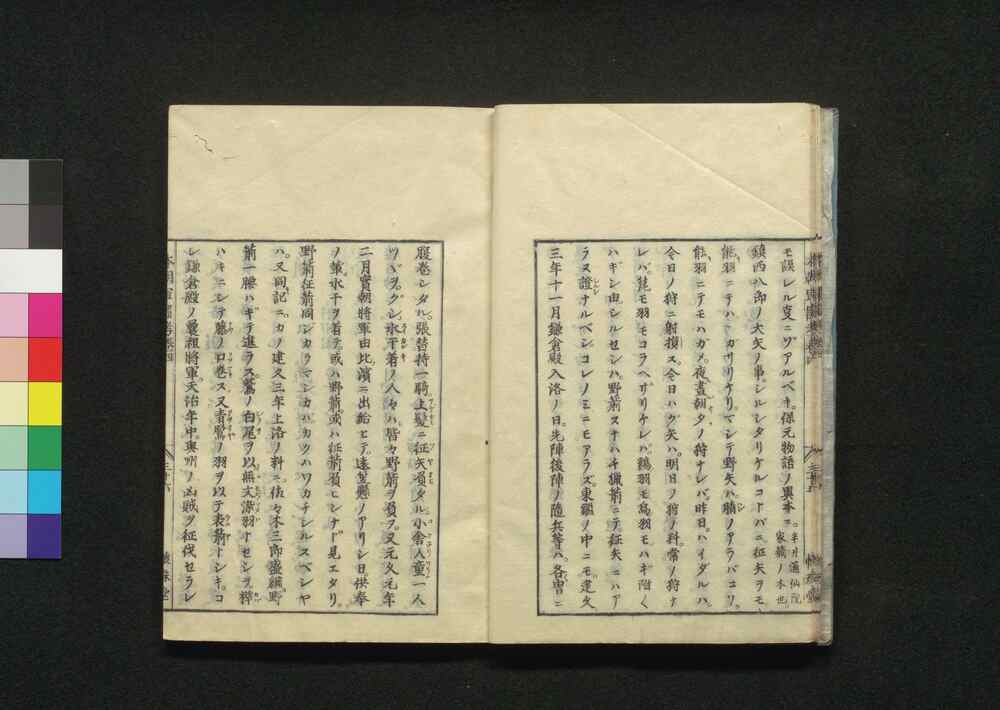 モ誤レル叓ニゾアルベキ。保元物語ノ異本ニ。半井通仙院家蔵ノ本也。
鎮西八郎ノ大矢ノ事シルシタリケルコトバニ征矢ヲモ、
鵰羽ニテハハガザリケリ。マシテ野矢ハ購ノアラバコソ。
鵰羽ニテモハガメ夜晝朝夕ノ狩ナレバ。昨日ハイタルハ
今日ノ狩ニ射損ス。今日ハグ矢ハ。明日ノ狩ノ料。常ノ狩ナ
レバ。鳶モ羽モコラヘザリケレバ。鶏羽モ烏羽モハキ附ク
ハギシ由シルセシハ。野箭スナハチ猟箭ニテ征矢ニハア
ラヌ證ナルベシ。コレノミニモアラズ。東鑑ノ中ニモ。建久
三年十一月鎌倉殿入洛ノ日。先陣後陣ノ随兵等ハ。各冑ニ
腹巻シタルハ。張替持一騎。上髪ニ征矢負タル小舎人童一人
ツヽヲグシ。水干着ノ人々ハ。皆々野箭ヲ負フ。又元久元年
二月實朝將軍由比濱ニ出給ヒテ。遠笠懸ノアリシ日。供奉
ノ輩水干ヲ着テ。或ハ野箭或ハ征箭負ヒシナド見エタリ。
野箭征箭同ジカラマシカバ。カクハワカチシルスベシヤ
ハ。又同記ニ。カノ建久三年上洛ノ料ニ。佐々木三郎盛綱。野
箭一腰ハギテ進ラス。鷲ノ白尾ヲ以無文染羽トセシヲ。
ハギニシテ。藤ノ口巻ス。又青鷺ノ羽ヲ以テ表箭トシキ。コ
レ鎌倉殿ノ曩祖將軍。天治年中。奥州ノ凶賊ヲ征伐セラレ